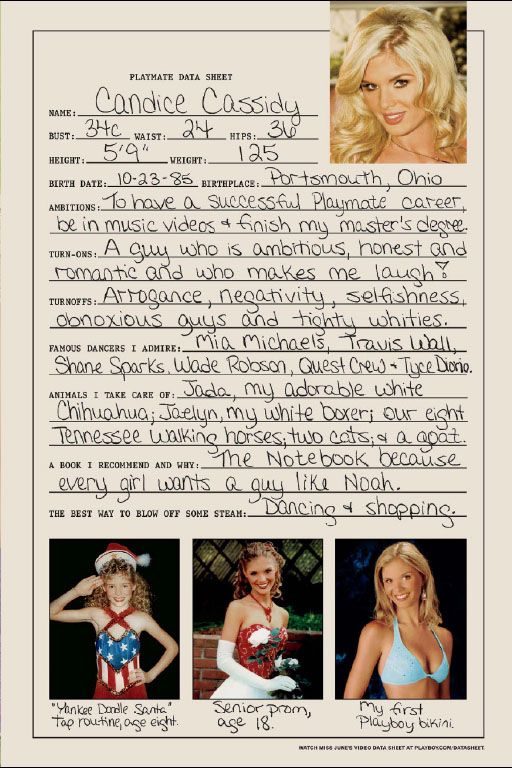 PLAYMATE DATA SHEET
NAME: Candice Cassidy
BUST: 34C WAIST: 24 HIPS: 36
HEIGHT: 5'9" WEIGHT: 125
BIRTH DATE: 10-23-85 BIRTHPLACE: Portsmouth, Ohio
AMBITIONS: To have a successful Playmate career,
be in music videos & finish my master's degree.
TURN-ONS: A guy who is ambitious, honest and
romantic and who makes me laugh!
TURNOFFS: Arrogance, negativity, selfishness,
obnoxious guys and tighty whities.
FAMOUS DANCERS I ADMIRE: Mia Michaels, Travis Wall,
Shane Sparks, Wade Robson, Quest Crew & Tyce Diorio.
ANIMALS I TAKE CARE OF: Jada, my adorable white
Chihuahua; Jaelyn, my white boxer; our eight
Tennessee walking horses; two cats; & a goat.
A BOOK I RECOMMEND AND WHY: The Notebook because
every girl wants a guy like Noah.
THE BEST WAY TO BLOW OFF SOME STEAM: Dancing & shopping.
"Yankee Doodle Santa"
tap routine, age eight.
Senior prom,
age 18.
My first
Playboy bikini.
WATCH MISS JUNE'S VIDEO DATA SHEET AT PLAYBOY.COM/DATASHEET.